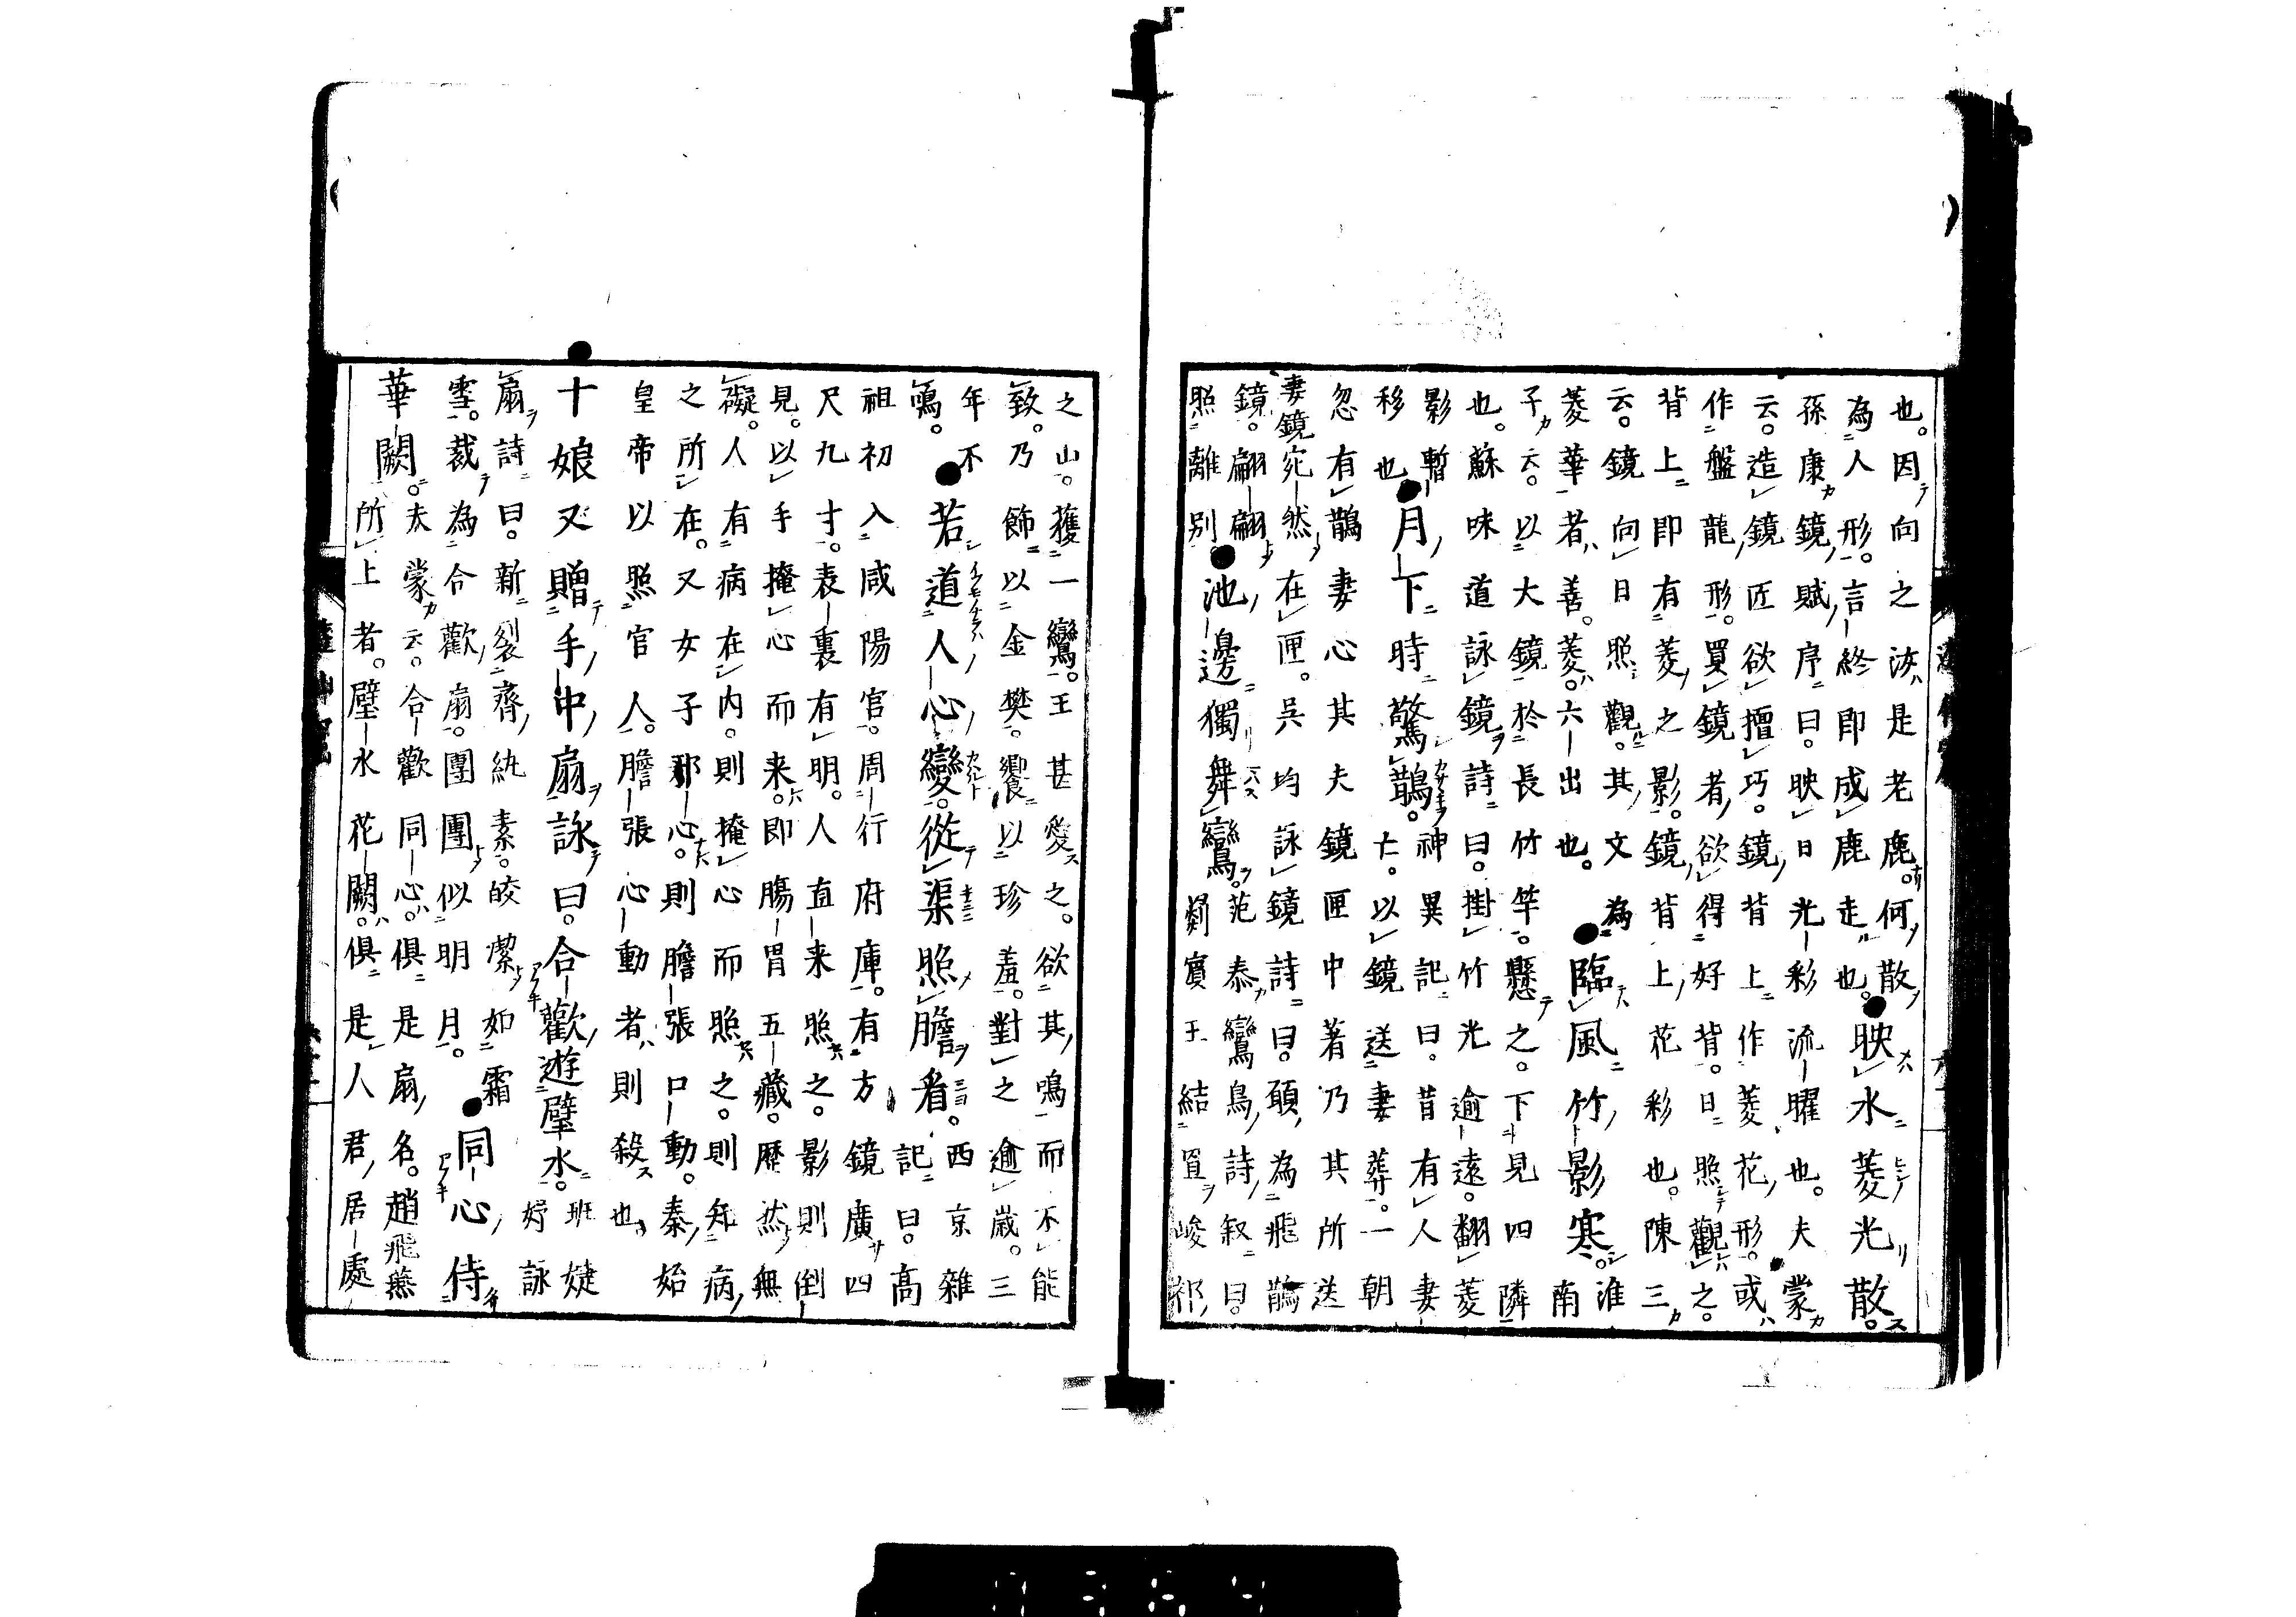 也。因向之是老鹿。何散
為人形。言終即成鹿走也。
映水菱光散。
孫康鏡賦序曰。映日光彩流曜也。夫蒙
云。造鏡匠欲擅巧。鏡背上作菱花形。或
作盤龍形。買鏡者欲得好背。日照觀之。
背上即有菱之影。鏡背上花彩也。陳三
云。鏡向日照觀。其文為
菱華者善。菱。六出也。
臨風竹影寒。
淮
南
子云。以大鏡於長竹竿。懸之。下見四隣
也。蘇味道詠鏡詩曰。掛竹光逾遠。翻菱
影暫
移也
月下時驚鵲。
神異記曰。昔有人妻
亡。以鏡送妻葬。一朝
忽有鵲妻心其夫鏡匣中著乃其所送
妻鏡宛然在匣。吳均詠鏡詩曰。願為飛鵲
鏡。翩翩
照離別。
池邊獨舞鸞。
范泰鸞鳥詩叙曰。
罽賓王結罝峻祁
之山。獲一鸞。王甚愛之。欲其鳴而不能
致。乃飾以金樊。饗以珍羞。對之逾歲。三
年不
鳴。
若道人心變。從渠照膽看。
西京雜
記曰。高
祖初入咸陽官。周行府庫。有方鏡廣四
尺九寸。表裏有明。人直来照之。影則倒
見。以手掩心而来。即腸胃五藏。歴然無
礙。人有病在内。則掩心而照之。則知病
之所在。又女子邪心。則膽張口動。秦始
皇帝以照官人。膽張心動者則殺也
十娘又贈手中扇詠曰。合歡遊璧水。
班婕
妤詠
扇詩曰。新裂齊紈素。皎潔如霜
雪。裁為合歡扇。團團似明月。
同心侍
華闕。
夫蒙云。合歡同心。俱是扇名。趙飛燕
所上者。璧水花闕。俱是人君居處